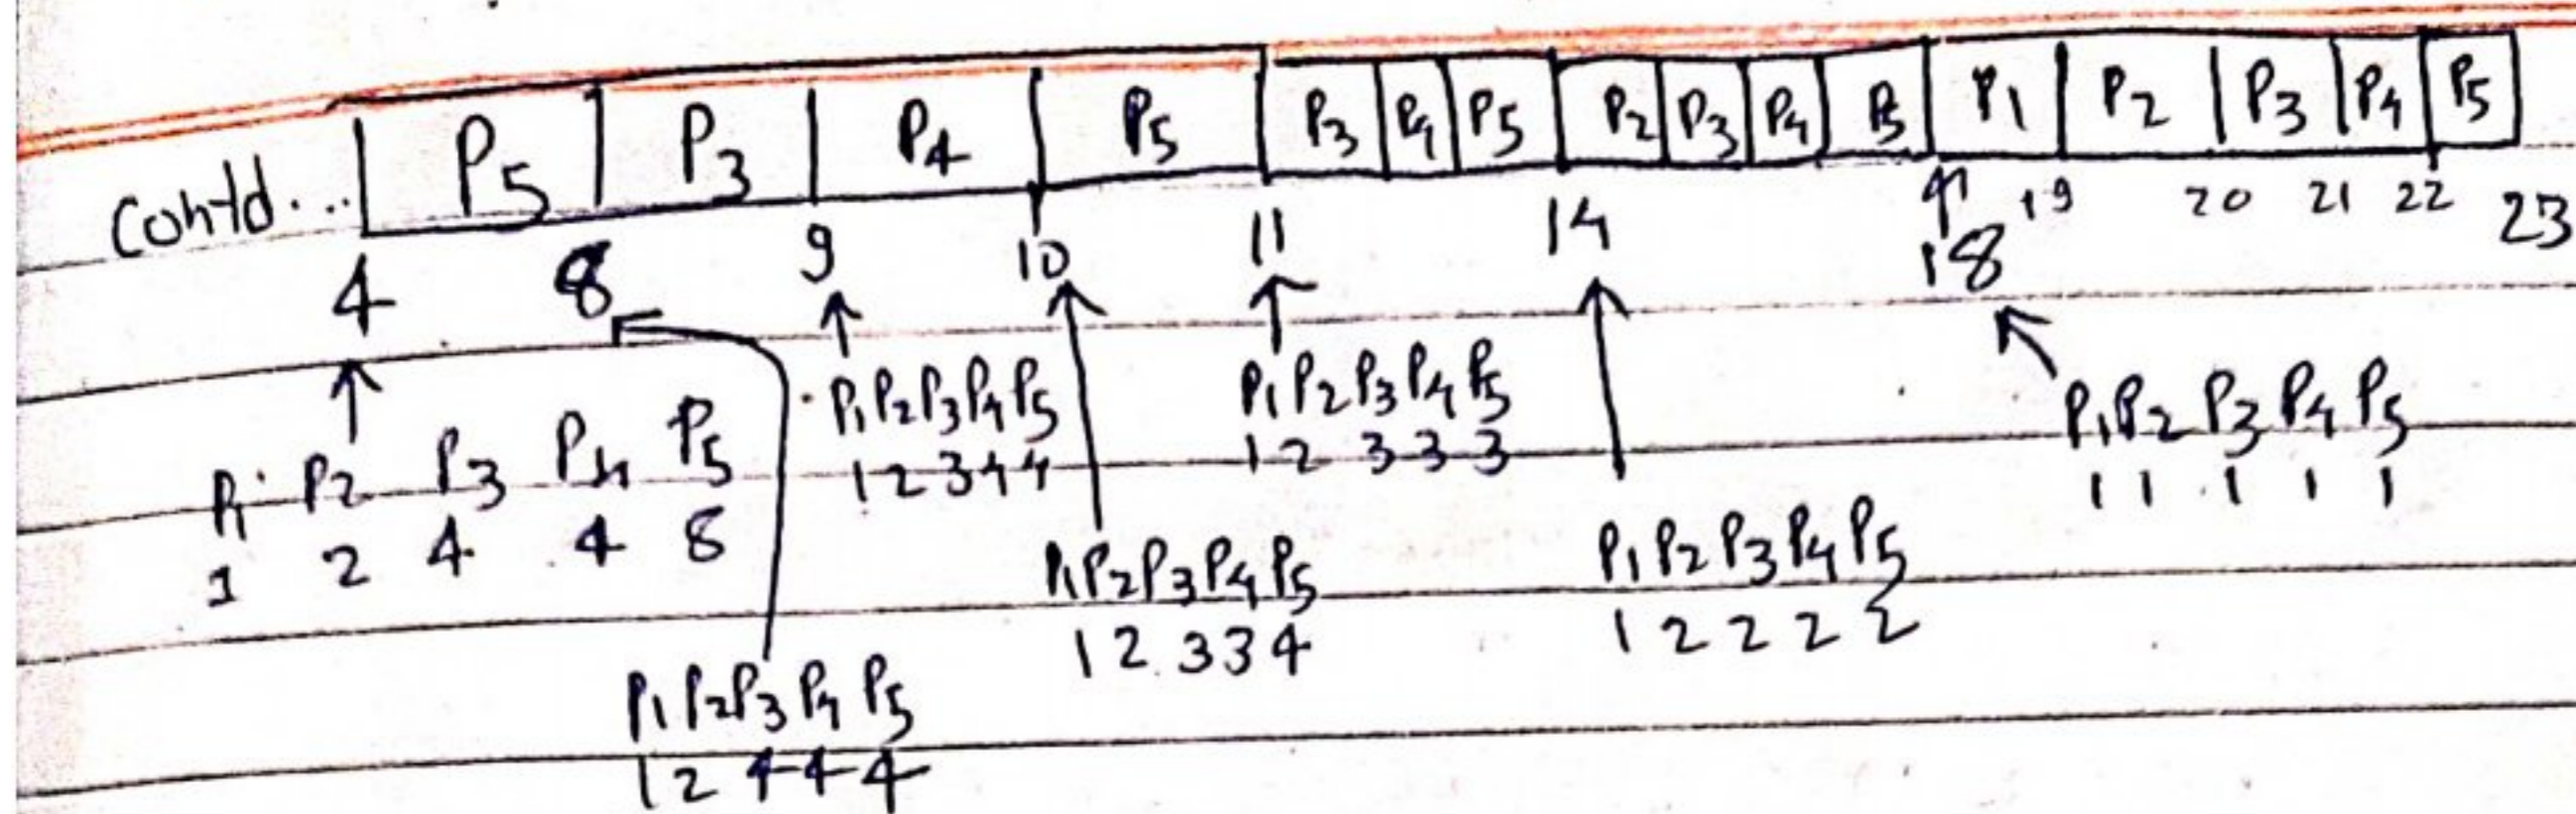 Contd... P5 P3 P4 P5 P3 P4 P5 P2 P3 P4 P5 P1 P2 P3 P4 P5
4 8 9 10 11 14 18 19 20 21 22 23
P1 P2 P3 P4 P5
1 2 4 4 8
P1 P2 P3 P4 P5
1 2 4 4 4
P1 P2 P3 P4 P5
1 2 3 4 4
P1 P2 P3 P4 P5
1 2 3 3 4
P1 P2 P3 P4 P5
1 2 3 3 3
P1 P2 P3 P4 P5
1 2 2 2 2
P1 P2 P3 P4 P5
1 1 1 1 1